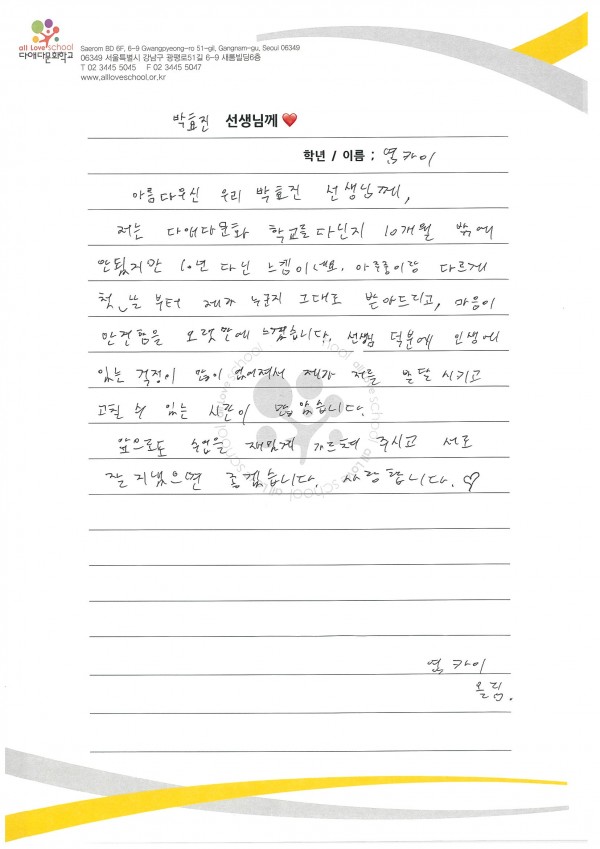 all Love school
다애다문화학교
Saerom BD 6F, 6-9 Gwangpyeong-ro 51-gil, Gangnam-gu, Seoul 06349
06349 서울특별시 강남구 광평로51길 6-9 새롬빌딩6층
T 02 3445 5045 F 02 3445 5047
www.alloveschool.or.kr
박효진 선생님께
학년 / 이름 ; 염카이
아름다우신 우리 박효진 선생님께,
저는 다애다문화 학교를 다닌지 10개월 밖에
안됬지만 10년 다닌 느낌이네요. 다르게
첫 날 부터 제가 누군지 그대로 받아드리고, 마음이
안견함을 오랫만에 느꼈습니다. 선생님 덕분에 인생에
있는 걱정이 많이 없어져서 제가 저를 발달 시키고
고칠 수 있는 시간이 많았습니다.
앞으로도 수업을 재밌게 가르쳐 주시고 서로
잘 지냈으면 좋겠습니다. 사랑합니다.
염카이
올림.
all Love school all Love school all Love school